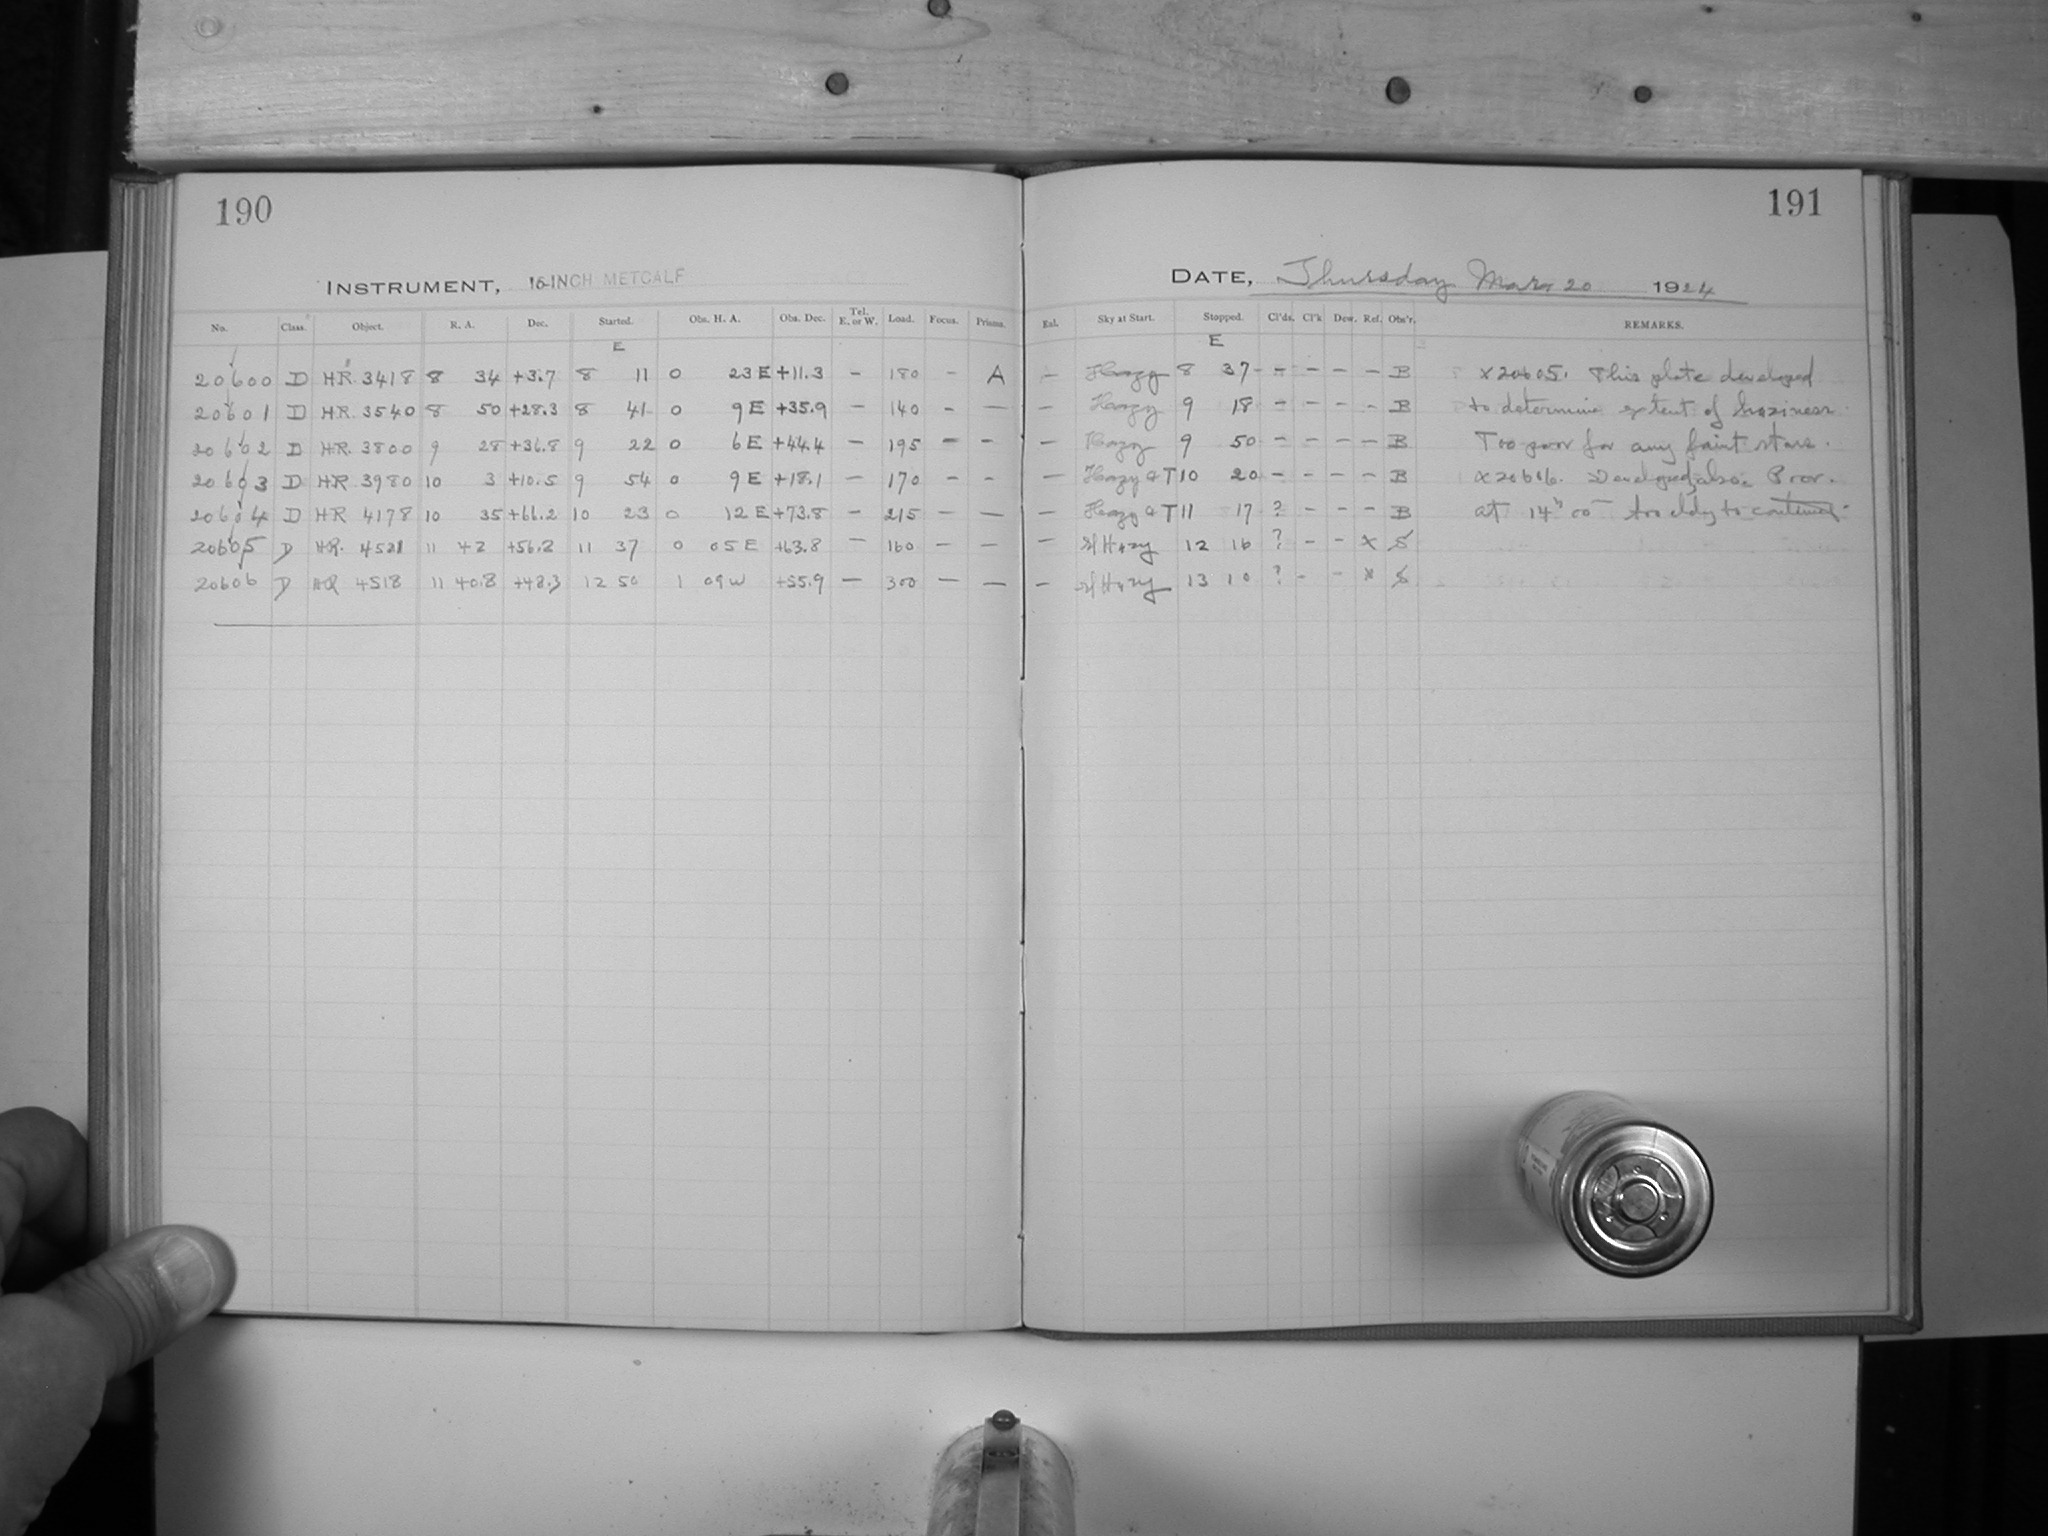 190
191
INSTRUMENT, 16-INCH METCALF
DATE, Thursday Mar. 20 1924
No. Class. Object. R. A. Dec. Started. Obs. H. A. Obs. Dec. Tel. E. or W. Load. Focus. Prisms. Sky at Start. Stopped. Cl'ds. Cl'k Dew. Ref. Obs'r. REMARKS.
E E
20600 D HR. 3418 8 34 +3.7 8 11 0 23 E +11.3 - 180 - A - Hazy 8 37 - - - - B x20605. This plate developed
20601 D HR. 3540 8 50 +28.3 8 41 0 9 E +35.9 - 140 - - - Hazy 9 18 - - - - B to determine extent of haziness
20602 D HR. 3800 9 28 +36.8 9 22 0 6 E +44.4 - 195 - - - Hazy 9 50 - - - - B Too poor for any faint stars.
20603 D HR 3980 10 3 +10.5 9 54 0 9 E +18.1 - 170 - - - Hazy & T 10 20 - - - - B x20606. Developed also. Poor.
20604 D HR 4178 10 35 +66.2 10 23 0 12 E +73.8 - 215 - - - Hazy & T 11 17 ? - - - B at 14h 00m too cldy to continue.
20605 D HR. 4521 11 42 +56.2 11 37 0 05 E +63.8 - 160 - - - Sl Hazy 12 16 ? - - x S
20606 D HR 4518 11 40.8 +48.3 12 50 1 09 W +55.9 - 300 - - - Sl Hazy 13 10 ? - - x S